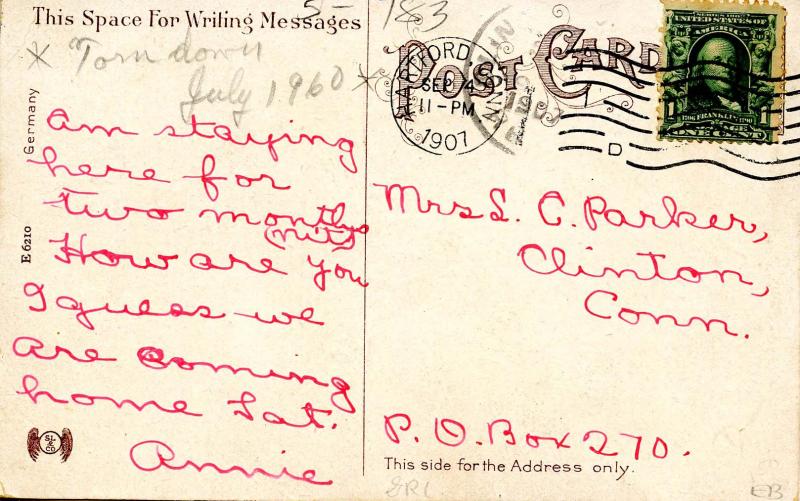 This Space For Writing Messages
5-783
* Torn down
July 1960 *
POST CARD
HARTFORD CONN.
SEP 4
11-PM
1907
D
SERIES 1902
UNITED STATES OF AMERICA
1 1
1706 FRANKLIN 1790
POSTAGE
ONE CENT
Germany
E 6210
Am staying
here for
two months
(nits)
How are you
I guess we
are coming
home Sat.
Annie
Mrs S. C. Parker,
Clinton,
Conn.
P. O. Box 270.
This side for the Address only.
EB